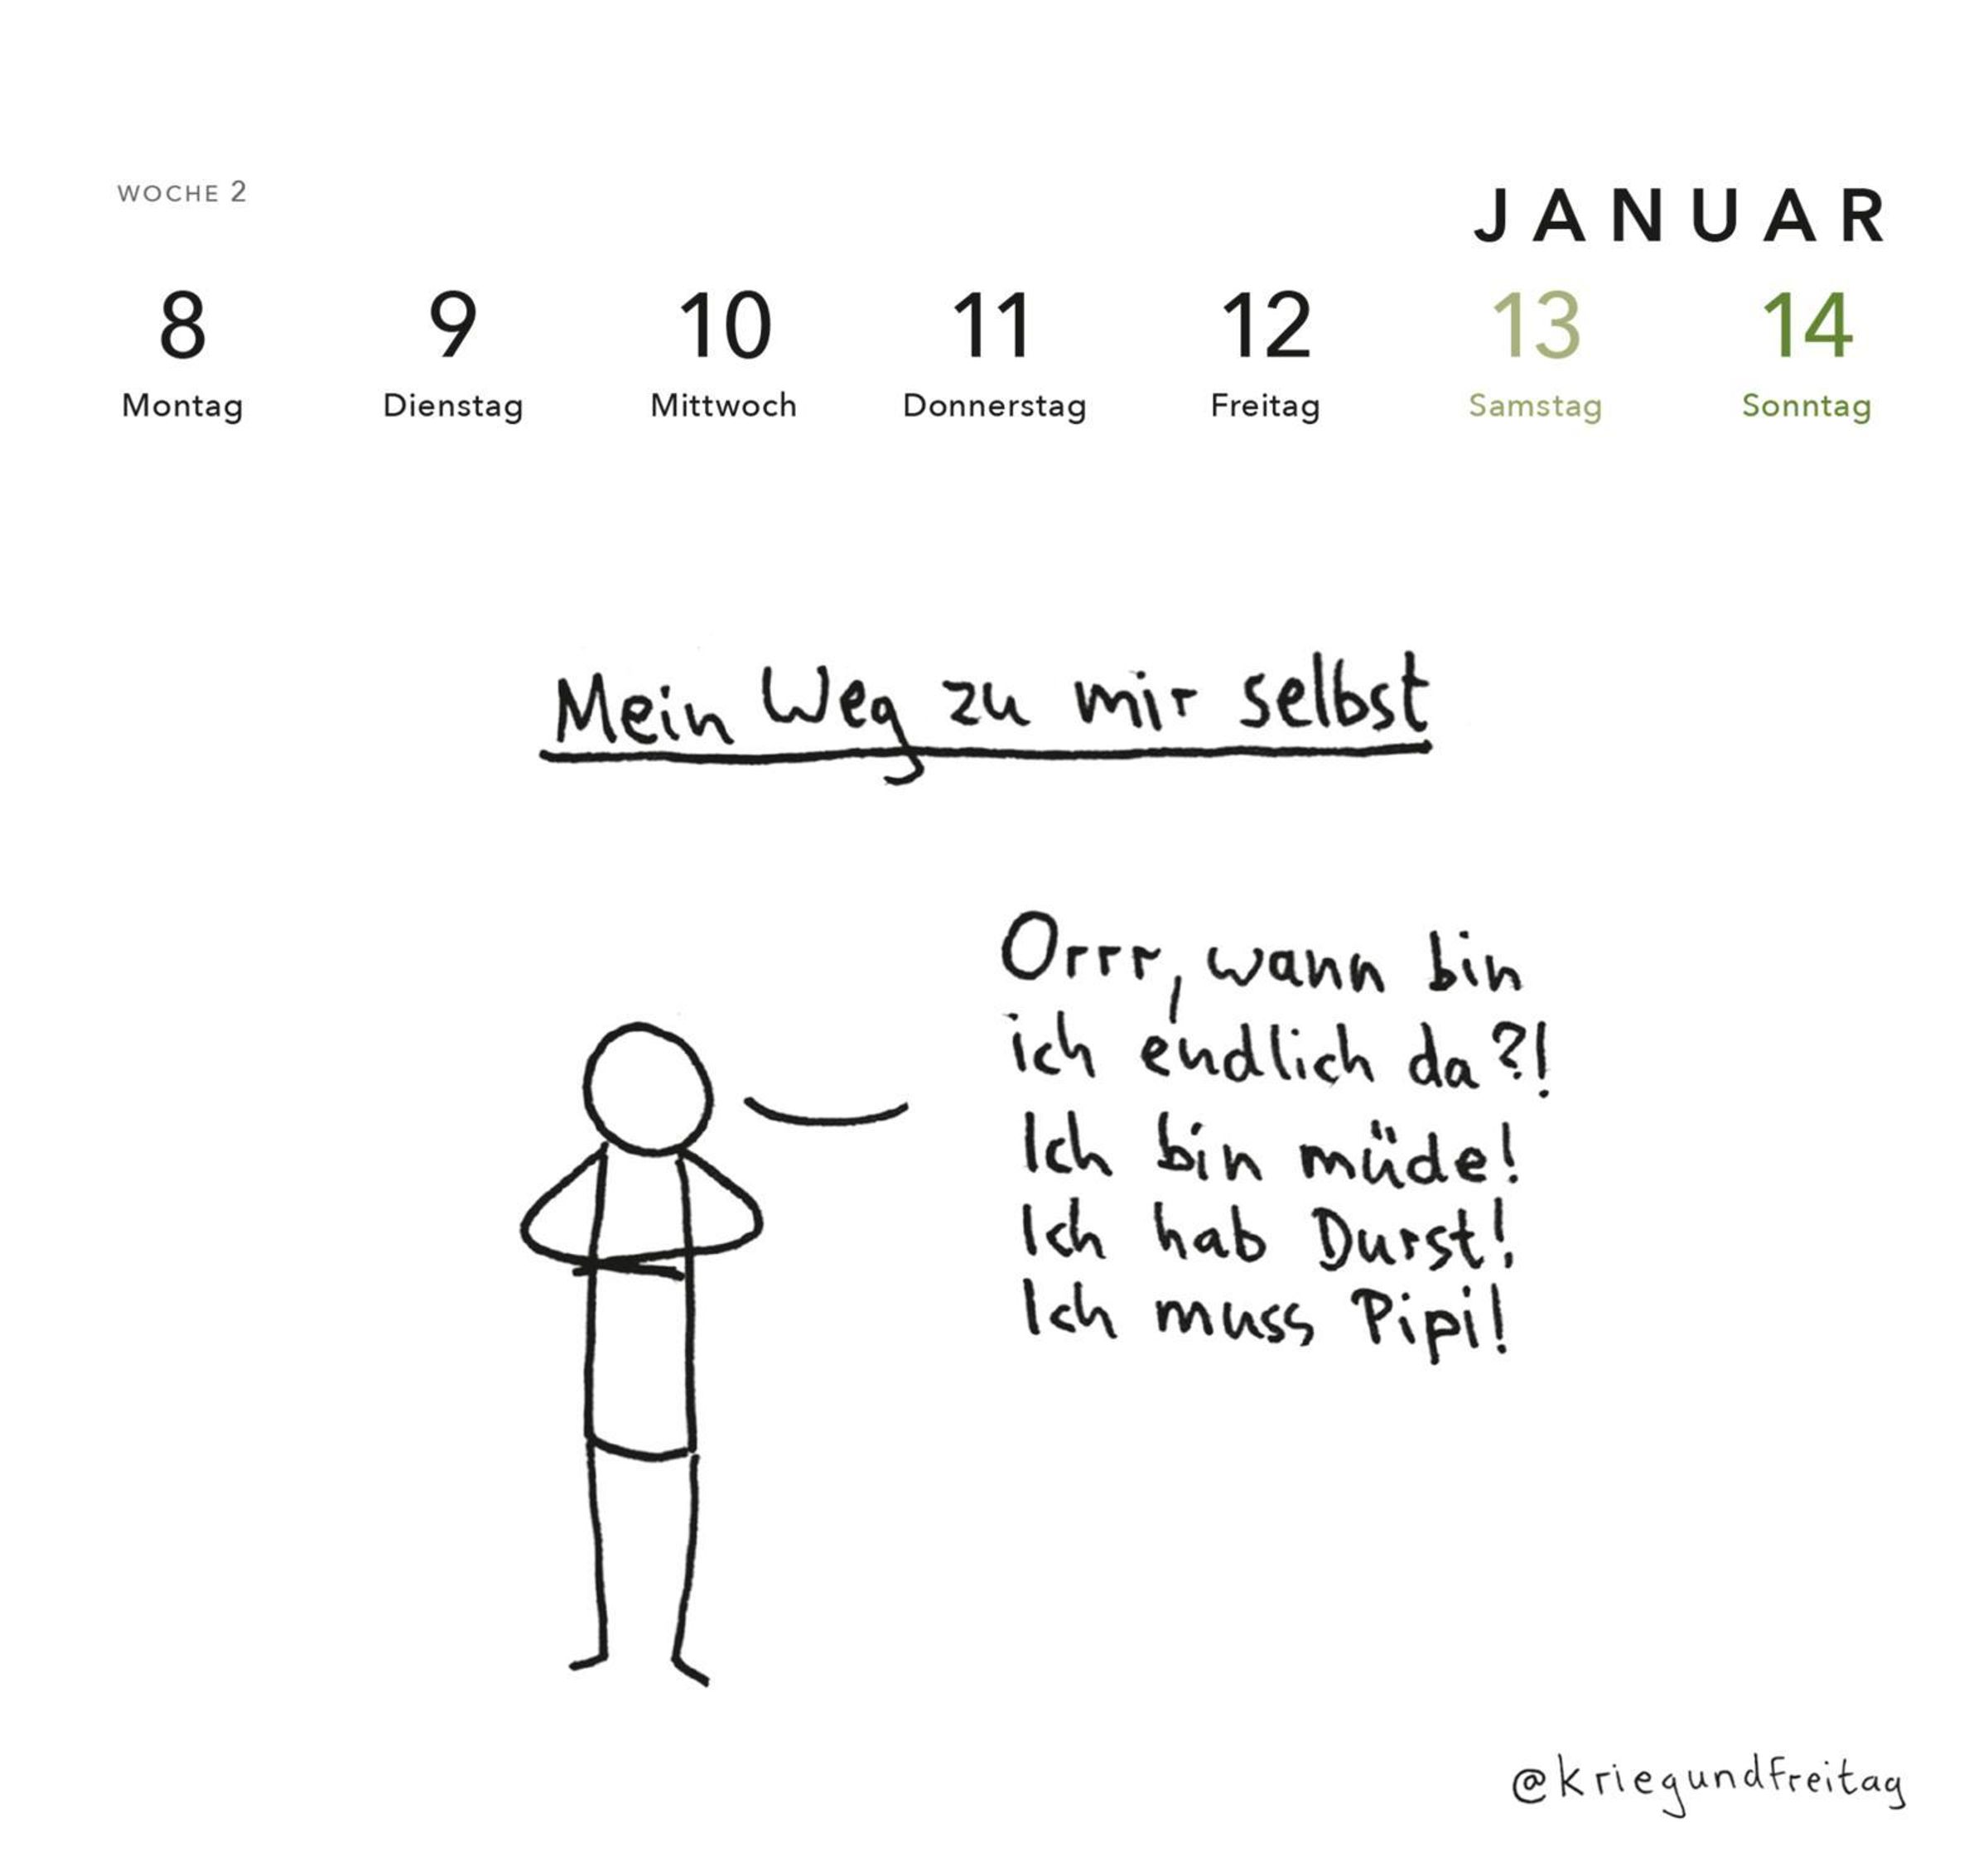 WOCHE 2
JANUAR
8 9 10 11 12 13 14
Montag Dienstag Mittwoch Donnerstag Freitag Samstag Sonntag
Mein Weg zu mir selbst
Orrr, wann bin
ich endlich da?!
Ich bin müde!
Ich hab Durst!
Ich muss Pipi!
@kriegundfreitag